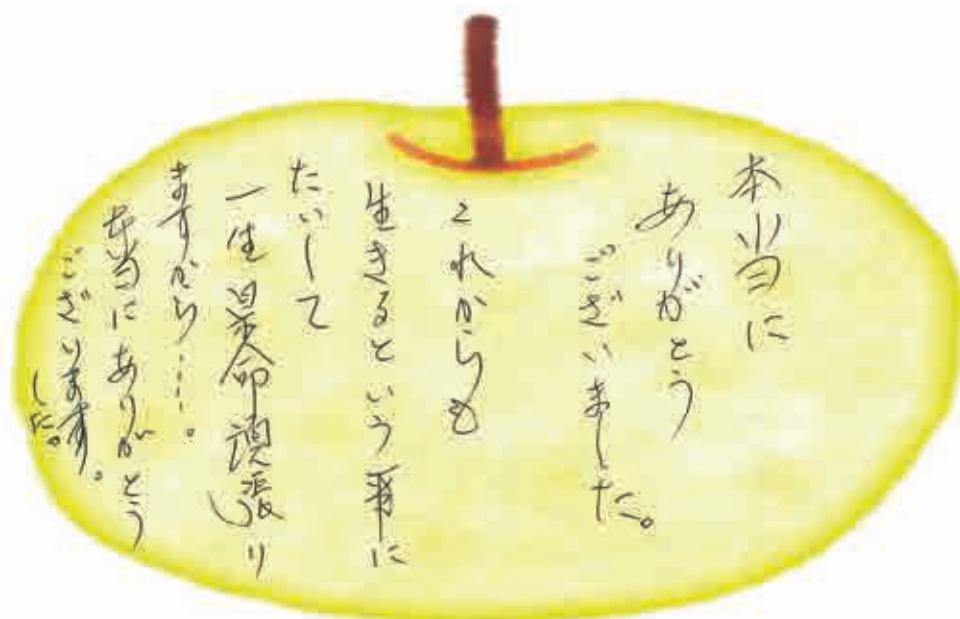 本当に
ありがとう
ございました。
これからも
生きるという事に
たいして
一生懸命頑張り
ますから……。
本当にありがとう
ございます。
した。